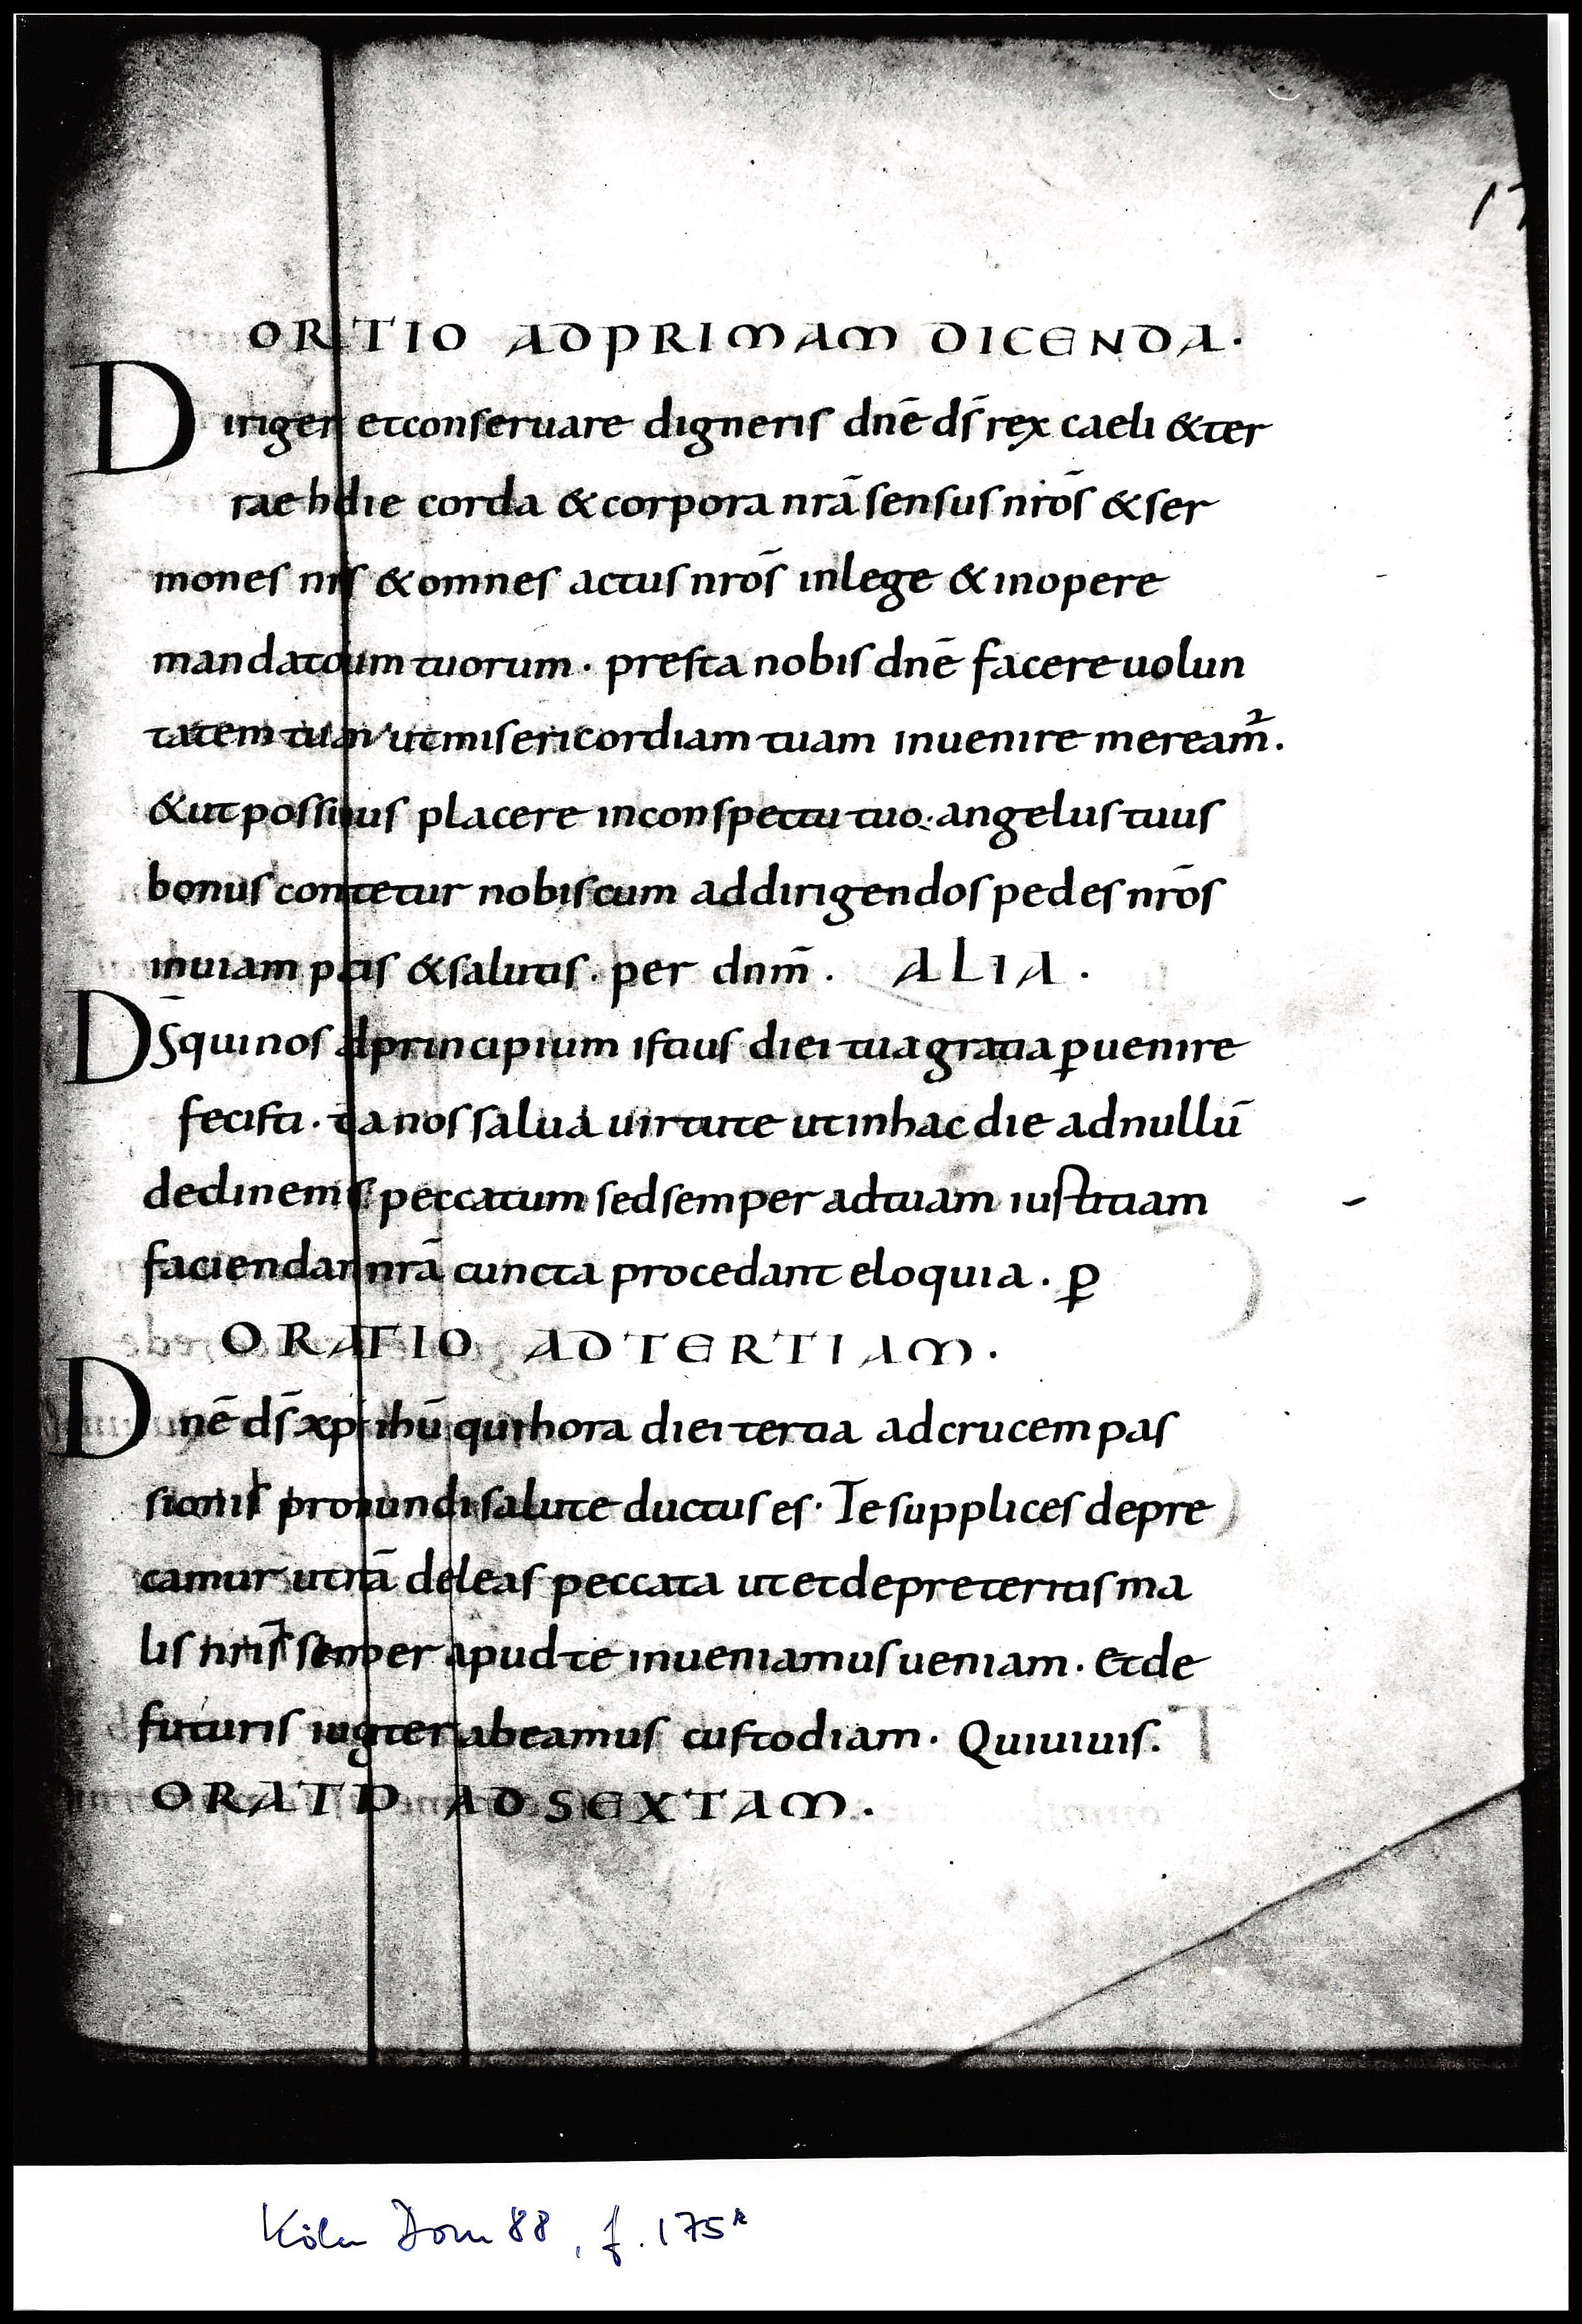 17
ORTIO ADPRIMAM DICENDA.
Dirigere etconseruare digneris dnē ds̄ rex caeli &ter
rae hodie corda & corpora nrā sensus nrōs & ser
mones nrs & omnes actus nrōs inlege & inopere
mandatorum tuorum · presta nobis dnē facere uolun
tatem tuam ut misericordiam tuam inuenire meream̄².
& ut possimus placere inconspectu tuo · angelus tuus
bonus comitetur nobiscum addirigendos pedes nrōs
inuiam pacis & salutis · per dnm̄ . ALIA .
DS̄ quinos adprincipium istius diei tua gratia ꝑuenire
fecisti · tua nos salua uirtute ut inhac die adnullū
declinemus peccatum sed semper adtuam iustitiam
faciendam nrā cuncta procedant eloquia · ꝑ
ORATIO ADTERTIAM .
Dnē ds̄ xpi ihū qui hora diei tertia ad crucem pas
sionis pro mundi salute ductus es · Te supplices depre
camur ut nrā deleas peccata ut et de preteritis ma
lis nris̄ semper apud te inueniamus ueniam · et de
futuris iugiter abeamus custodiam · Qui uiuis .
ORATIO ADSEXTAM .
Köln Dom 88, f. 175ʳ